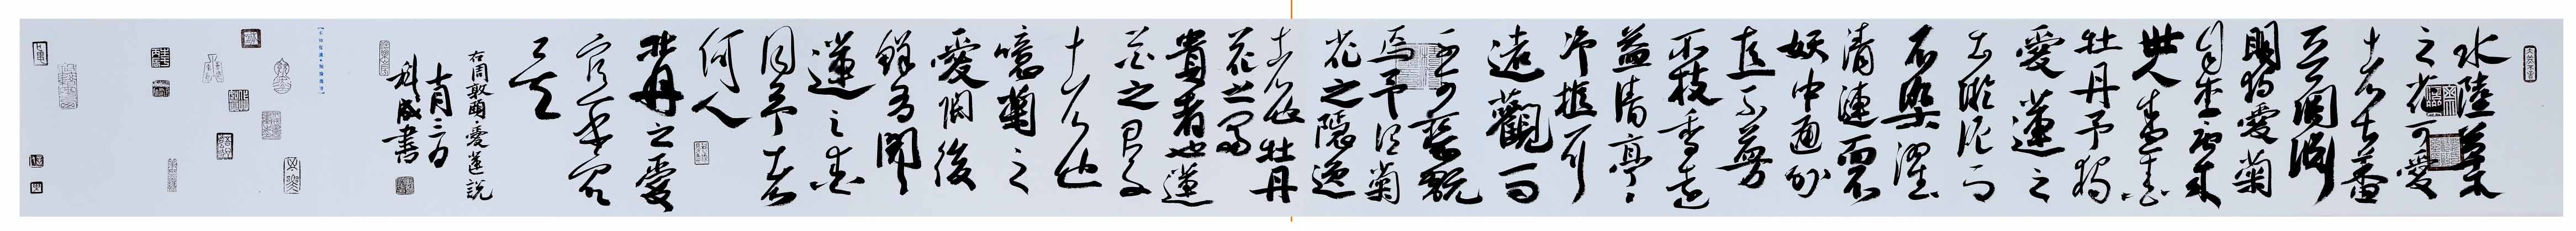 水陸草木
之花可愛
者甚蕃
晉陶淵
明獨愛菊
自李唐來
世人甚愛
牡丹予獨
愛蓮之
出淤泥而
不染濯
清漣而不
妖中通外
直不蔓
不枝香遠
益清亭亭
淨植可
遠觀而
不可褻翫
焉予謂菊
花之隱逸
者也牡丹
花之富
貴者也蓮
花之君子
者也
噫菊之
愛陶後
鮮有聞
蓮之愛
同予者
何人
牡丹之愛
宜乎眾
矣
右周敦頤愛蓮說
書